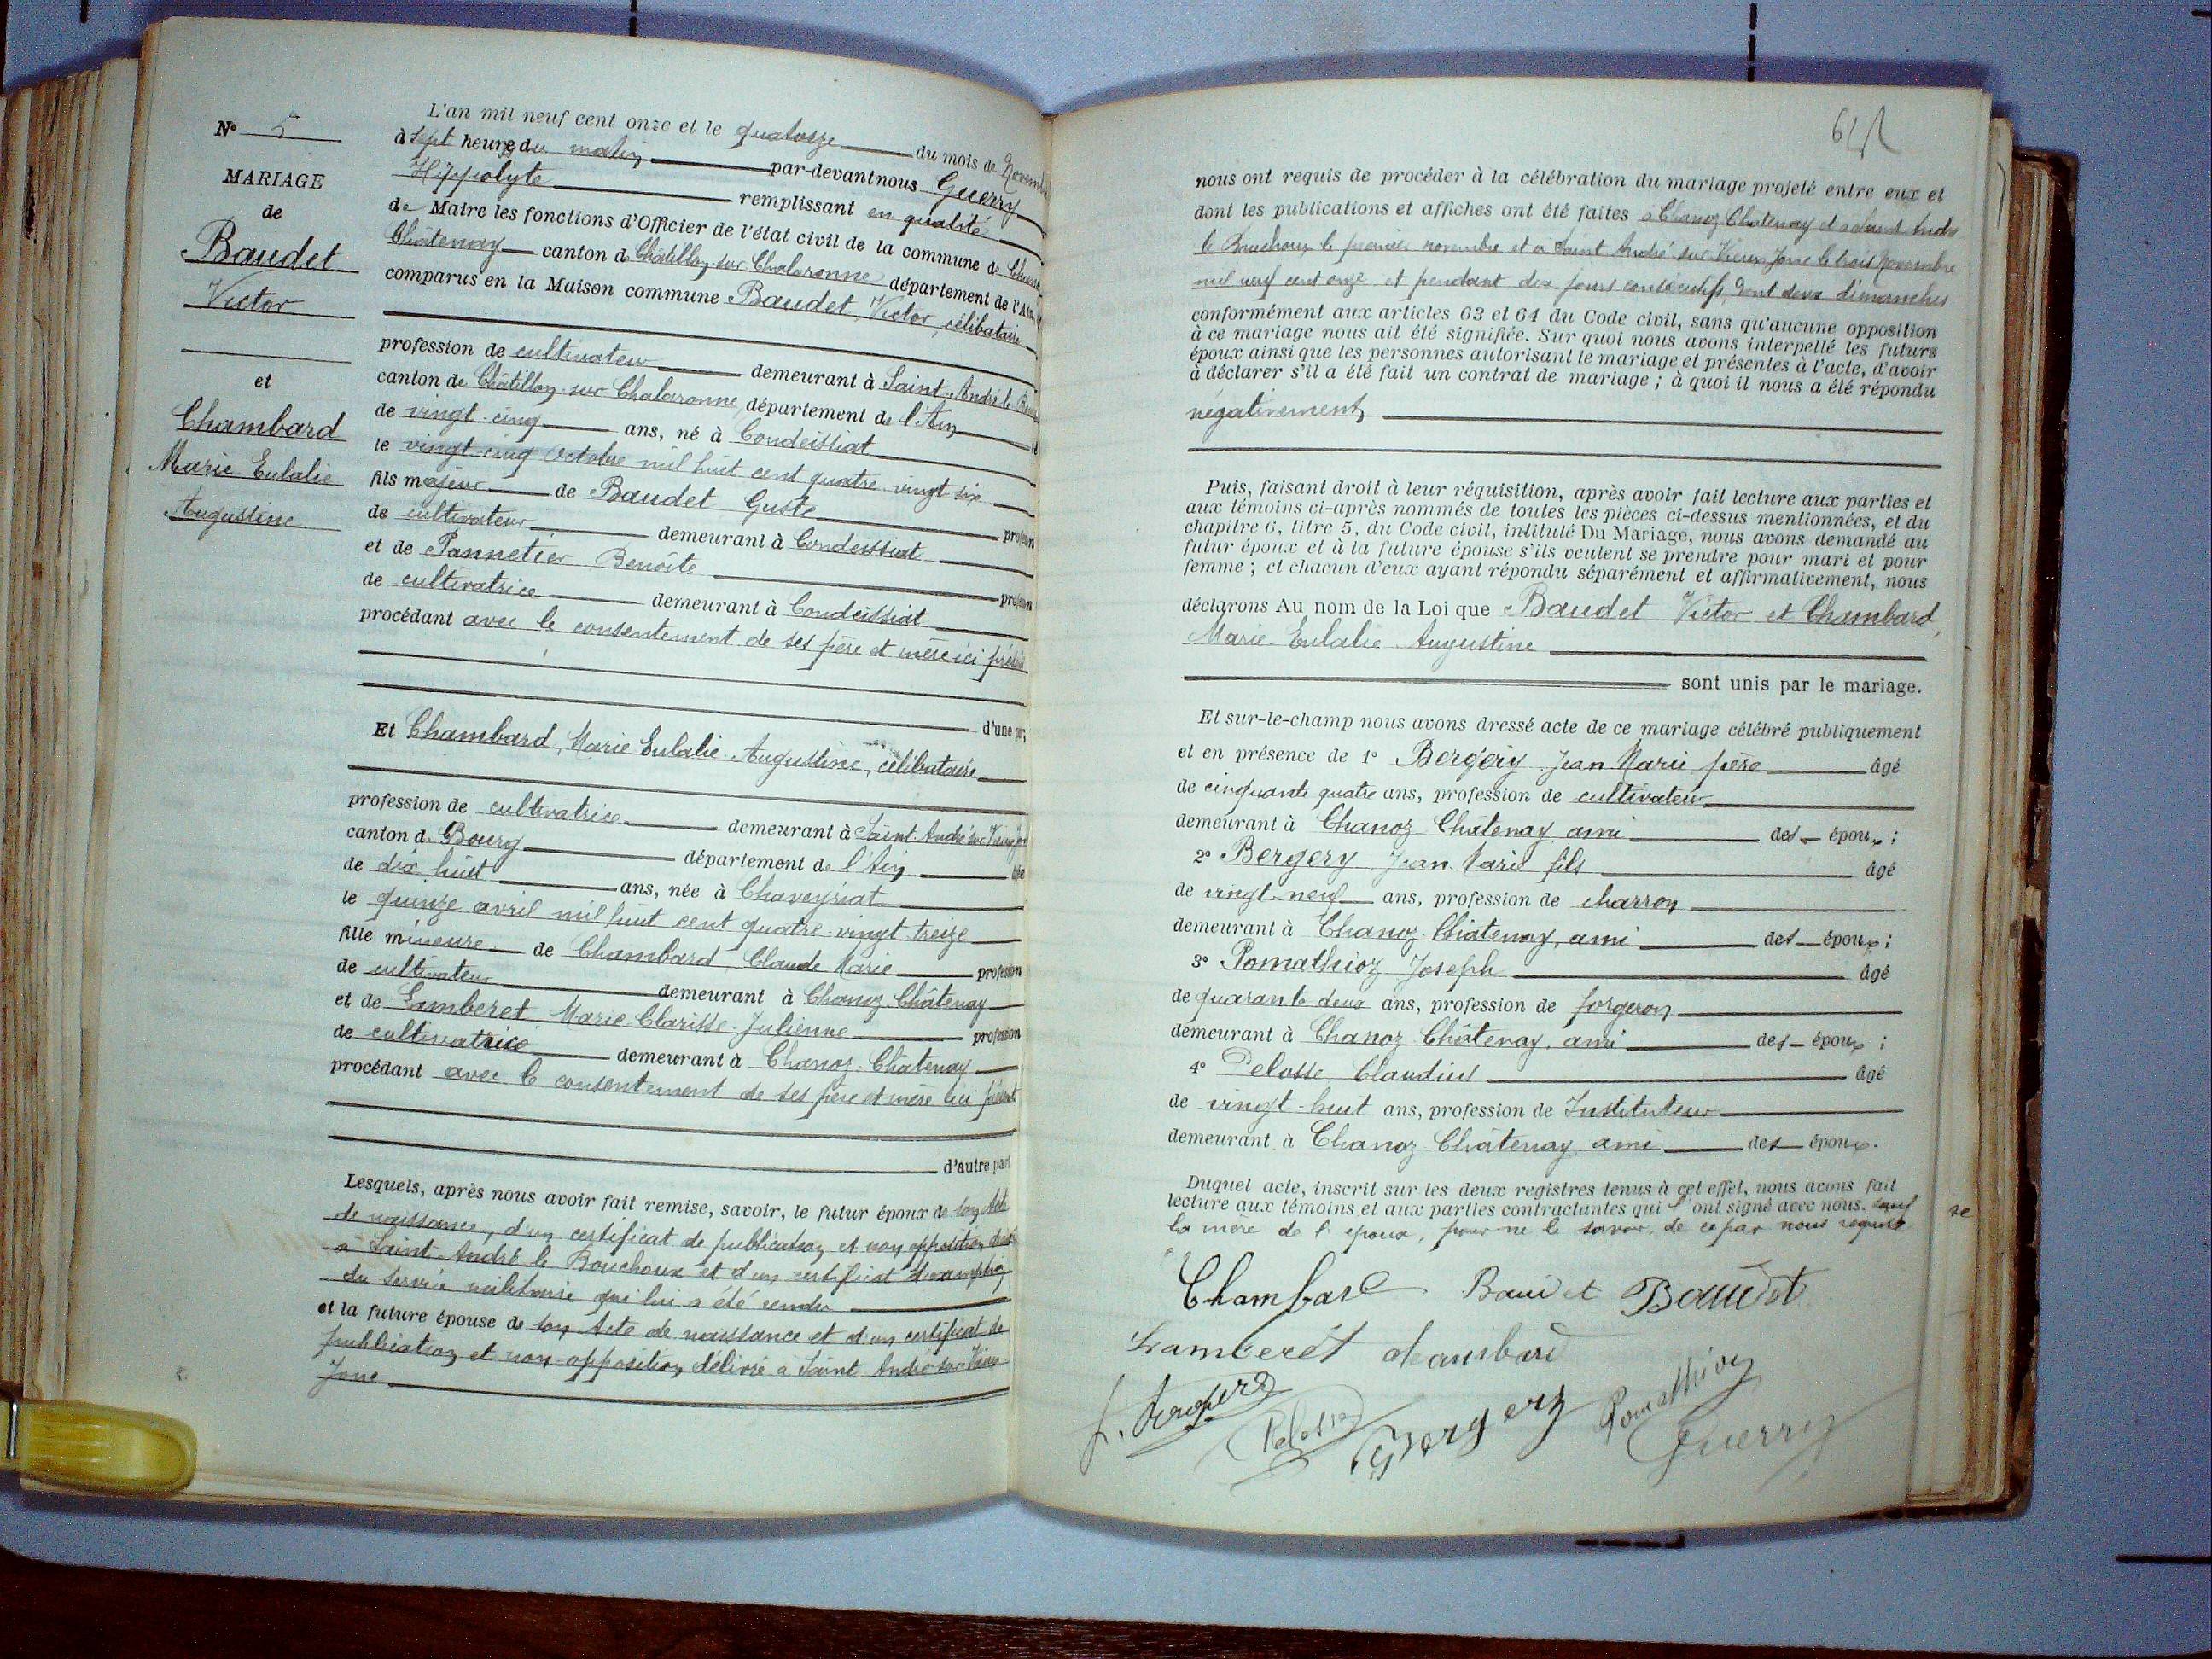 N° 5
MARIAGE
de
Baudet
Victor
et
Chambard
Marie Eulalie
Augustine
L'an mil neuf cent onze et le quatorze du mois de Novembre
à sept heures du matin par-devant nous Guerry
Hippolyte remplissant en qualité
de Maire les fonctions d'Officier de l'état civil de la commune de Chanoz
Châtenay canton de Châtillon sur Chalaronne département de l'Ain,
comparus en la Maison commune Baudet, Victor, célibataire
profession de cultivateur demeurant à Saint-André le Bouchoux
canton de Châtillon sur Chalaronne, département de l'Ain
de vingt-cinq ans, né à Condeissiat
le vingt-cinq octobre mil huit cent quatre-vingt six
fils majeur de Baudet Guste profession
de cultivateur demeurant à Condeissiat
et de Pannetier Benoite profession
de cultivatrice demeurant à Condeissiat
procédant avec le consentement de ses père et mère ici présents
d'une part;
Et Chambard, Marie Eulalie Augustine, célibataire
profession de cultivatrice demeurant à Saint-André sur Vieux Jonc
canton de Bourg département de l'Ain âgée
de dix huit ans, née à Chaveyriat
le quinze avril mil huit cent quatre-vingt treize
fille mineure de Chambard, Claude Marie profession
de cultivateur demeurant à Chanoz Châtenay
et de Lamberet Marie Clarisse Julienne profession
de cultivatrice demeurant à Chanoz Châtenay
procédant avec le consentement de ses père et mère ici présents
d'autre part
Lesquels, après nous avoir fait remise, savoir, le futur époux de son Acte
de naissance, d'un certificat de publication et non opposition délivré
à Saint-André le Bouchoux et d'un certificat d'exemption
du service militaire qui lui a été rendu
et la future épouse de son Acte de naissance et d'un certificat de
publication et non-opposition délivré à Saint André sur Vieux
Jonc
nous ont requis de procéder à la célébration du mariage projeté entre eux et
dont les publications et affiches ont été faites à Chanoz Châtenay et à Saint André
le Bouchoux le premier novembre et à Saint André sur Vieux Jonc le trois Novembre
mil neuf cent onze et pendant dix jours consécutifs, dont deux dimanches
conformément aux articles 63 et 64 du Code civil, sans qu'aucune opposition
à ce mariage nous ait été signifiée. Sur quoi nous avons interpellé les futurs
époux ainsi que les personnes autorisant le mariage et présentes à l'acte, d'avoir
à déclarer s'il a été fait un contrat de mariage ; à quoi il nous a été répondu
négativement
Puis, faisant droit à leur réquisition, après avoir fait lecture aux parties et
aux témoins ci-après nommés de toutes les pièces ci-dessus mentionnées, et du
chapitre 6, titre 5, du Code civil, intitulé Du Mariage, nous avons demandé au
futur époux et à la future épouse s'ils veulent se prendre pour mari et pour
femme ; et chacun d'eux ayant répondu séparément et affirmativement, nous
déclarons Au nom de la Loi que Baudet Victor et Chambard,
Marie Eulalie Augustine
sont unis par le mariage.
Et sur-le-champ nous avons dressé acte de ce mariage célébré publiquement
et en présence de 1° Bergery Jean Marie père âgé
de cinquante quatre ans, profession de cultivateur
demeurant à Chanoz Châtenay ami des époux ;
2° Bergery Jean Marie fils âgé
de vingt-neuf ans, profession de charron
demeurant à Chanoz Châtenay, ami des époux ;
3° Pomathioz Joseph âgé
de quarante deux ans, profession de forgeron
demeurant à Chanoz Châtenay, ami des époux ;
4° Pelosse Claudius âgé
de vingt-huit ans, profession de Instituteur
demeurant à Chanoz Châtenay ami des époux.
Duquel acte, inscrit sur les deux registres tenus à cet effet, nous avons fait
lecture aux témoins et aux parties contractantes qui l'ont signé avec nous, sauf
la mère de l'époux, pour ne le savoir, de ce par nous requise
Chambard Baudet Baudet
Lamberet chambard
Pelosse Bergery Pomathioz
Guerry